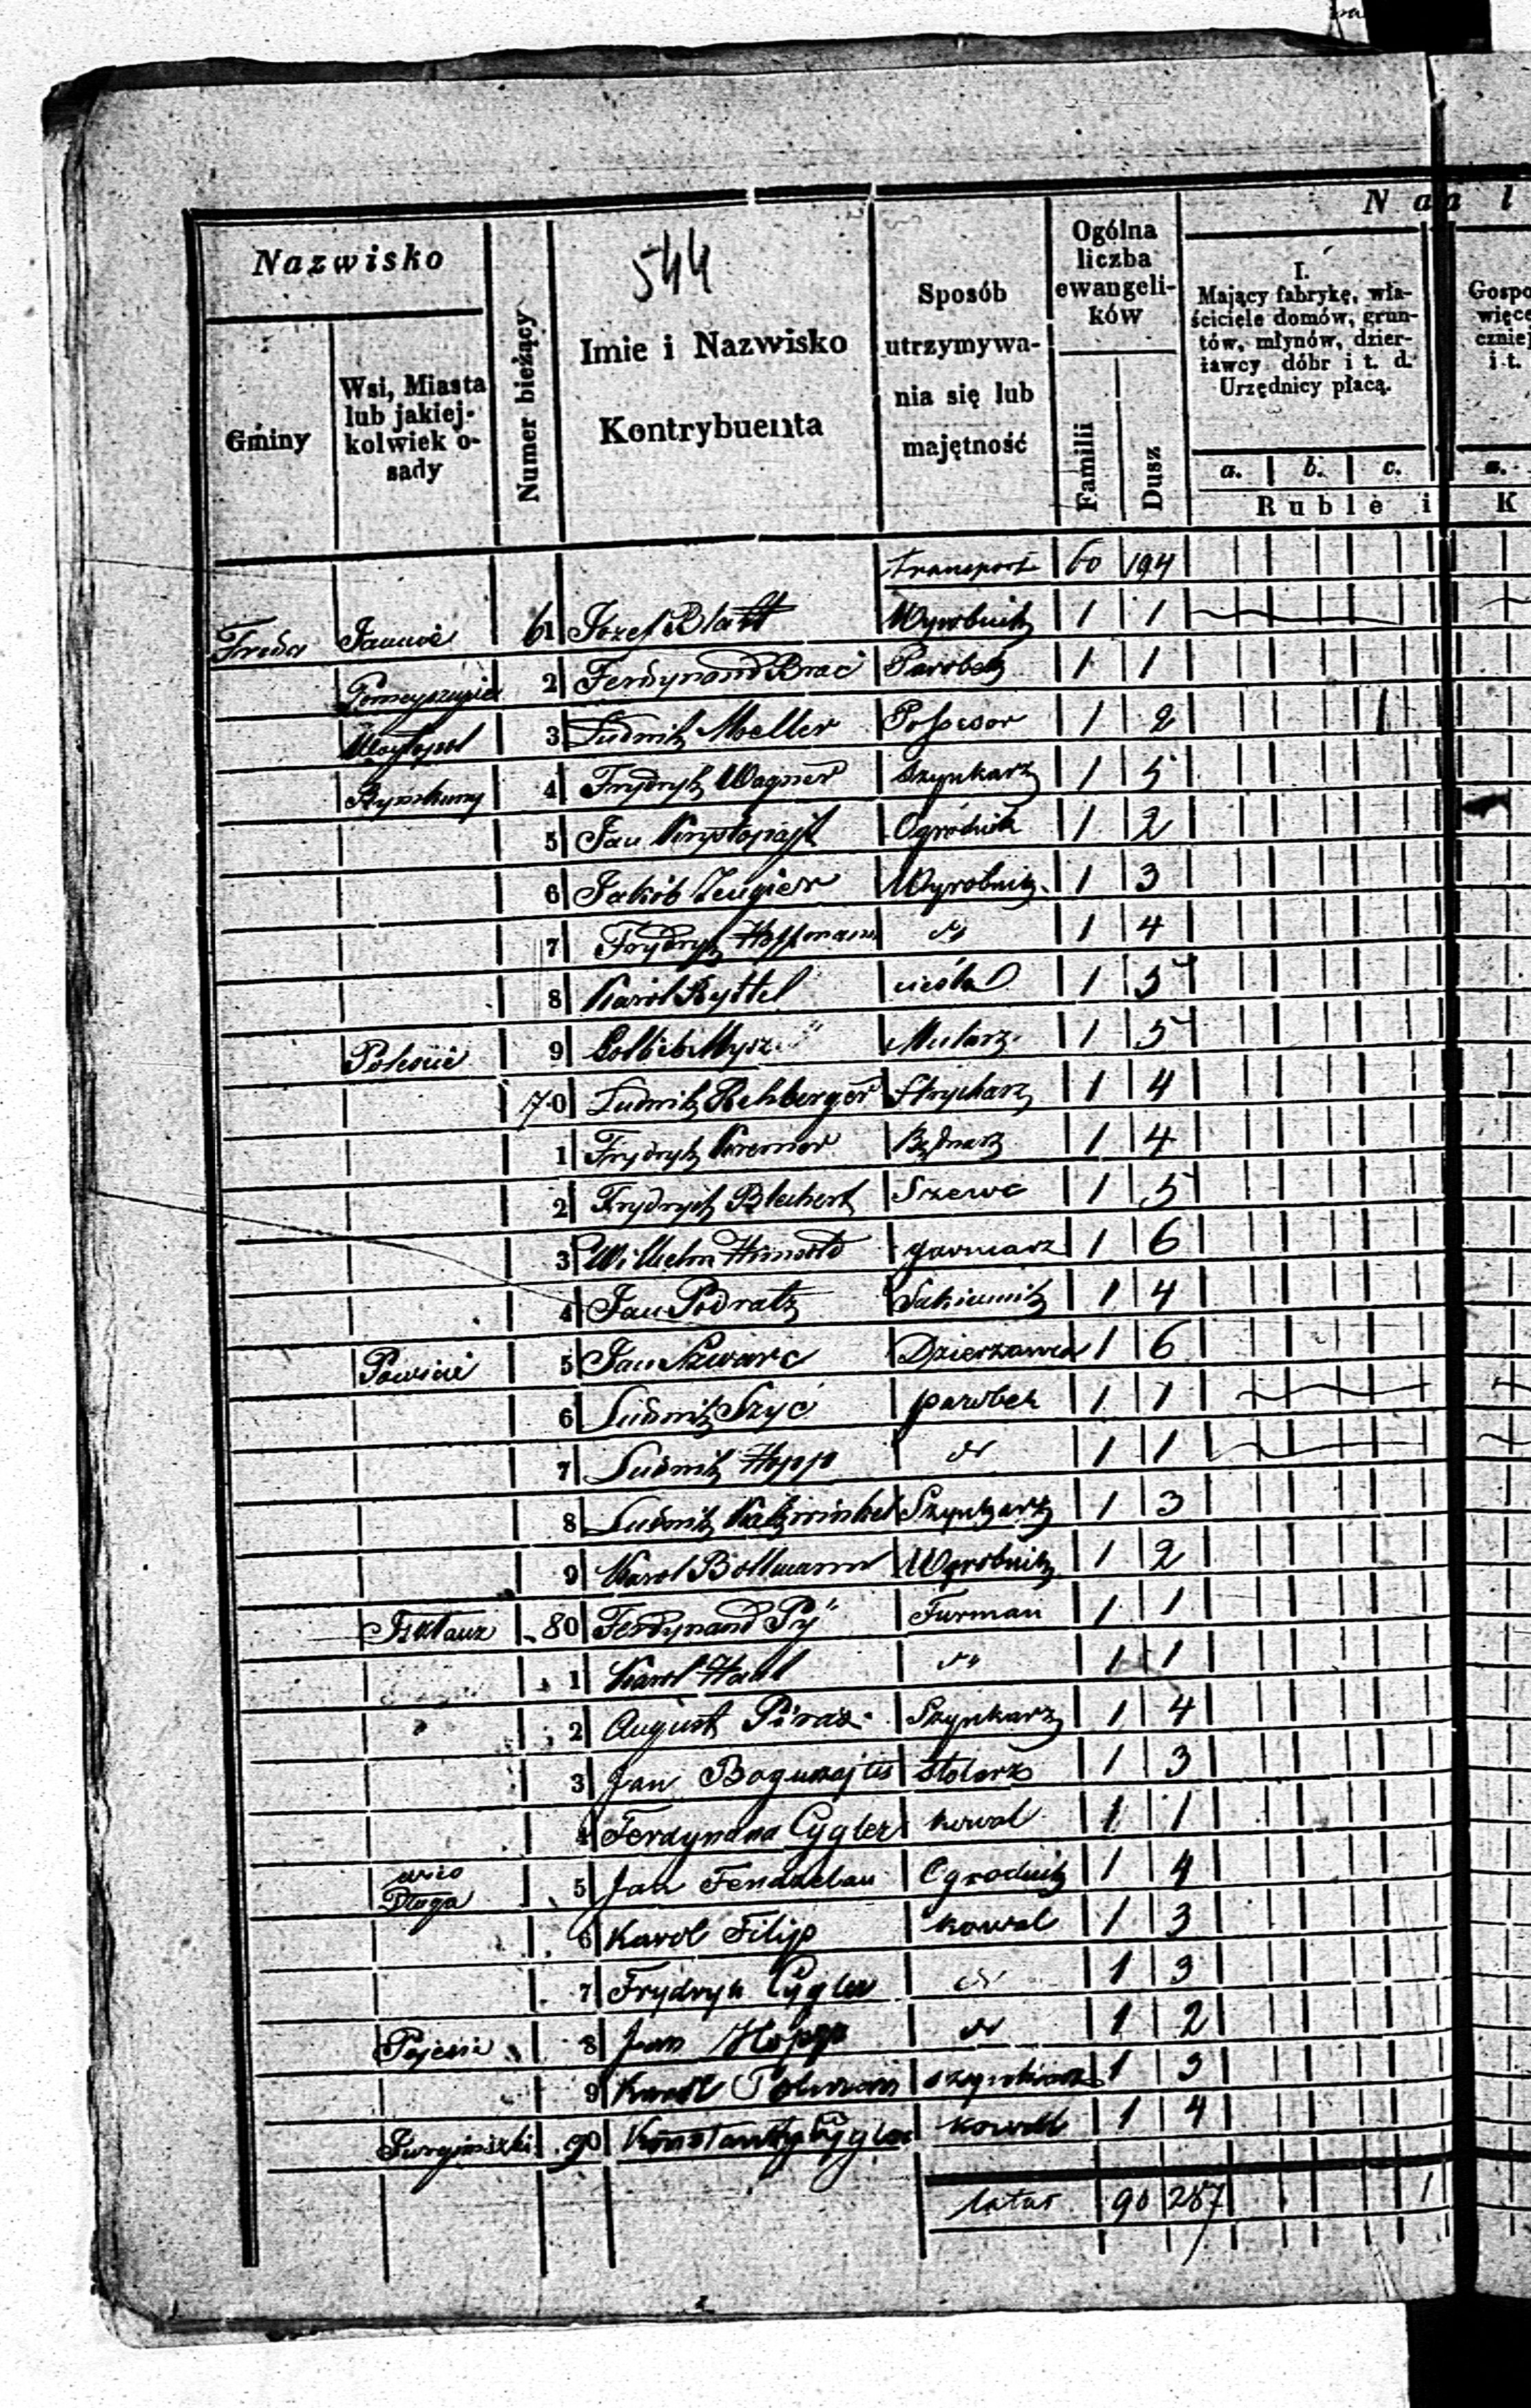 544
Nazwisko
Gminy
Wsi, Miasta
lub jakiej-
kolwiek o-
sady
Numer bieżący
Imie i Nazwisko
Kontrybuenta
Sposób
utrzymywa-
nia się lub
majętność
Ogólna
liczba
ewangeli-
ków
Familii
Dusz
I.
Mający fabrykę, wła-
ściciele domów, grun-
tów, młynów, dzier-
żawcy dóbr i t. d.
Urzędnicy płacą.
a. b. c.
Ruble i
Gospo
więce
cznie
i t.
a.
K
transport 60 194
Freda 61 Józef Blatt Wyrobnik 1 1
2 Ferdynand Brac Parobek 1 1
3 Ludwik Moeller Possesor 1 2
4 Frydryk Wagner Szynkarz 1 5
5 Jan Ogrodnik 1 2
6 Jakób Zeugier Wyrobnik 1 3
7 Frydryk Hoffmann do 1 4
8 Karol Kyttel cieśla 1 5
9 Mularz 1 5
70 Ludwik Rehberger Strycharz 1 4
1 Frydryk Kremer Bednarz 1 4
2 Frydrych Blechert Szewc 1 5
3 Wilhelm garncarz 1 6
4 Jan Podratz 1 4
5 Jan Szwarc Dzierzawca 1 6
6 Ludwik Szyc parobek 1 1
7 Ludwik Hopp do 1 1
8 Ludwik Szynkarz 1 3
9 Karol Bollmann Wyrobnik 1 2
80 Ferdynand Py Furman 1 1
1 Karol do 1 1
2 August Piraz Szynkarz 1 4
3 Jan Stolarz 1 3
4 Ferdynand Cygler kowal 1 1
Długa 5 Jan Ogrodnik 1 4
6 Karol Filip kowal 1 3
7 Frydryk Cygler do 1 3
Pojesie 8 Jan Hopp do 1 2
9 Karol szynkarz 1 3
90 Konstanty Cygler kowal 1 4
latus 90 287 1